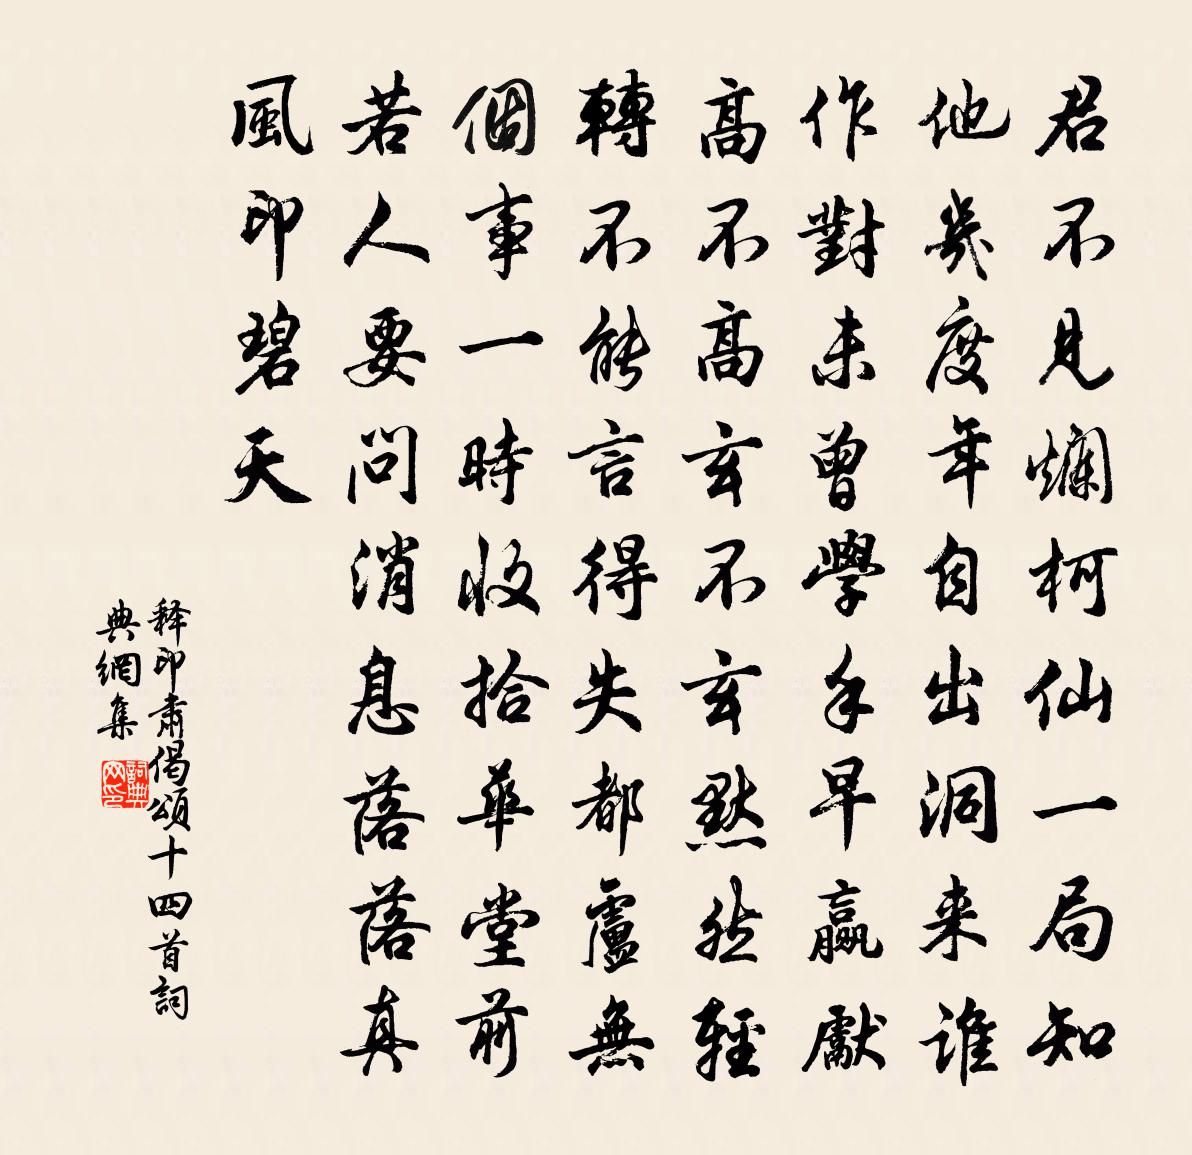 君不見爛柯仙一局知
他幾度年自出洞来誰
作對未曾學手早贏獻
高不高玄不玄默然輕
轉不能言得失都盧無
個事一時收拾華堂前
若人要問消息落落真
風印碧天
释印肅偈頌十四首詞
典網集
詞典
网印